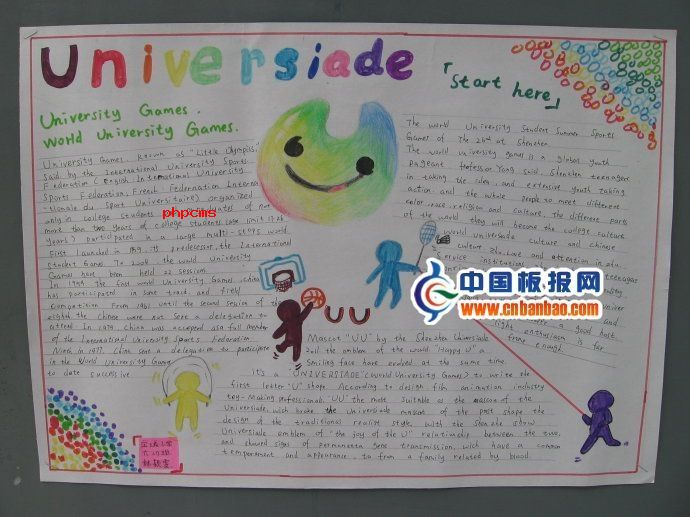 Universiade
「Start here」
University Games.
World University Games.
University Games. known as "Little Olympics."
Said by the International University Sports
Federation (English International University
Sports Federation, French Federnation Interna
-tionale du Sport Universitaire) organized
only in college students
graduates of not
phpcms
more than two years of college students (age limit 17-28
years) participated in a large multi-steps world
First launched in 1959. its predecessor, the International
student Games. To 2008. the world University
Games have been held 22 session.
In 1959. the first world University Games, china
has participated in some track and field
competition From 1961 until the second session of the
eighth the Chinese were not sene a delegation to
attend In 1975. China was accepeed as a full member
of the International University Sports Federation
Nineh in 1977. China sene a delegation to participate
in the World University Games
to date successive.
The world University Student Summer Sports
Games of The 26th at Shenzhen.
The world university games is a global youth
Pageant Professor Yong said. Shenzhen teenager
in taking the idea. and extensive youth taking
action and the whole people to meet different
color. race. religion and culture. the different parts
of the world they will become the college culture
world universiade culture and chinese
culture. Zha. attention in atu.
Service institutions
teenages
university
a good host
light enthusiasm is far
from enough.
中国板报网
www.cnbanbao.com
UU
Mascot "UU" by the Shenzhen Universiade
2011 the emblem of the world "Happy U" a
Smiling face have evolved at the same time.
it's a UNIVERSIADE (World University Games) to write the
first letter "U" shape. According to design film animation industry
toy-making professionals. "UU" the most suitable as the mascon of the
Universiade. wich broke the universiade mascon of the past shape the
design of the traditional realist style. with the Shenzhen
Universiade emblem of "the joy of the U" relationship between the two.
and shared signs of permanenta gene transmission, wich have a common
temperament and appearance. to from a family related by blood.